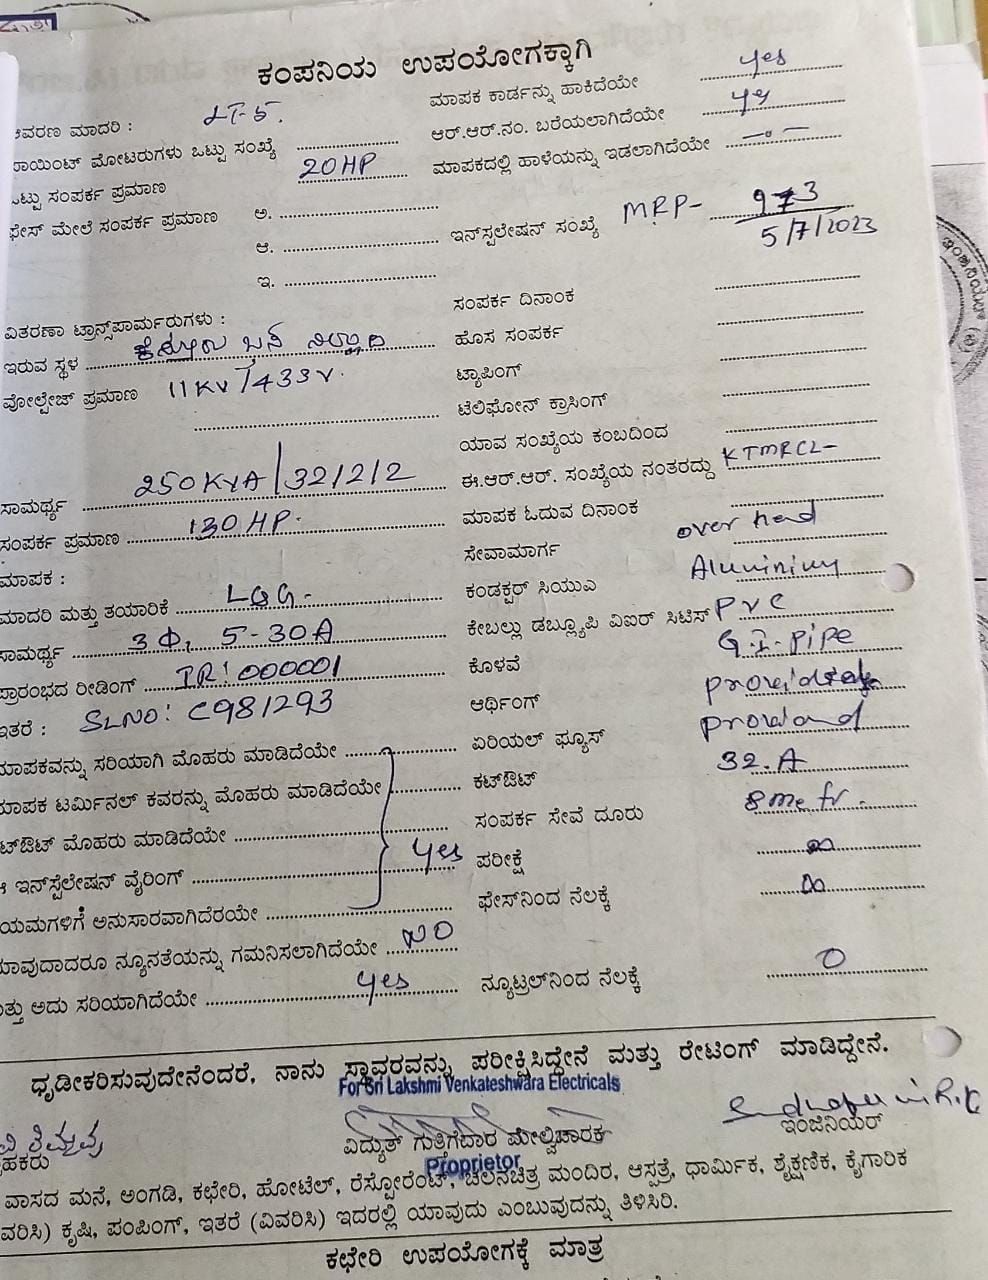 ಕಂಪನಿಯ ಉಪಯೋಗಕ್ಕಾಗಿ
ಆವರಣ ಮಾದರಿ : LT-5. ಮಾಪಕ ಕಾರ್ಡನ್ನು ಹಾಕಿದೆಯೇ yes
ಪಾಯಿಂಟ್ ಮೋಟರುಗಳು ಒಟ್ಟು ಸಂಖ್ಯೆ ಆರ್.ಆರ್.ನಂ. ಬರೆಯಲಾಗಿದೆಯೇ yes
ಒಟ್ಟು ಸಂಪರ್ಕ ಪ್ರಮಾಣ 20 HP ಮಾಪಕದಲ್ಲಿ ಹಾಳೆಯನ್ನು ಇಡಲಾಗಿದೆಯೇ
ಫೇಸ್ ಮೇಲೆ ಸಂಪರ್ಕ ಪ್ರಮಾಣ ಅ. ಇನ್‌ಸ್ಟಲೇಷನ್ ಸಂಖ್ಯೆ MRP- 973
5/7/2023
ಆ.
ಇ. ಸಂಪರ್ಕ ದಿನಾಂಕ
ವಿತರಣಾ ಟ್ರಾನ್ಸ್‌ಪಾರ್ಮರುಗಳು : ಹೊಸ ಸಂಪರ್ಕ
ಇರುವ ಸ್ಥಳ
ವೋಲ್ಟೇಜ್ ಪ್ರಮಾಣ 11KV/433V. ಟ್ಯಾಪಿಂಗ್
ಟೆಲಿಫೋನ್ ಕ್ರಾಸಿಂಗ್
ಯಾವ ಸಂಖ್ಯೆಯ ಕಂಬದಿಂದ
ಸಾಮರ್ಥ್ಯ 250KVA/32/2/2 ಈ.ಆರ್.ಆರ್. ಸಂಖ್ಯೆಯ ನಂತರದ್ದು KTMRCL-
ಸಂಪರ್ಕ ಪ್ರಮಾಣ 130 HP. ಮಾಪಕ ಓದುವ ದಿನಾಂಕ
ಮಾಪಕ : ಸೇವಾಮಾರ್ಗ over head
ಮಾದರಿ ಮತ್ತು ತಯಾರಿಕೆ L&G- ಕಂಡಕ್ಟರ್ ಸಿಯುಎ
ಸಾಮರ್ಥ್ಯ 3Φ, 5-30A ಕೇಬಲ್ಲು ಡಬ್ಲ್ಯೂಪಿ ವಿಐರ್ ಸಿಟಿಸ್ PVC
ಪ್ರಾರಂಭದ ರೀಡಿಂಗ್ IR: 000001 ಕೊಳವೆ G.I-Pipe
ಇತರೆ : SLNO: C981293 ಆರ್ಥಿಂಗ್
ಮಾಪಕವನ್ನು ಸರಿಯಾಗಿ ಮೊಹರು ಮಾಡಿದೆಯೇ ಏರಿಯಲ್ ಫ್ಯೂಸ್
ಮಾಪಕ ಟರ್ಮಿನಲ್ ಕವರನ್ನು ಮೊಹರು ಮಾಡಿದೆಯೇ ಕಟ್‌ಔಟ್ 32.A
ಕಟ್‌ಔಟ್ ಮೊಹರು ಮಾಡಿದೆಯೇ ಸಂಪರ್ಕ ಸೇವೆ ದೂರು 8 metr.
ಈ ಇನ್‌ಸ್ಟೆಲೇಷನ್ ವೈರಿಂಗ್ yes ಪರೀಕ್ಷೆ ∞
ನಿಯಮಗಳಿಗೆ ಅನುಸಾರವಾಗಿದೆರಯೇ ಫೇಸ್‌ನಿಂದ ನೆಲಕ್ಕೆ ∞
ಯಾವುದಾದರೂ ನ್ಯೂನತೆಯನ್ನು ಗಮನಿಸಲಾಗಿದೆಯೇ NO
ಮತ್ತು ಅದು ಸರಿಯಾಗಿದೆಯೇ yes ನ್ಯೂಟ್ರಲ್‌ನಿಂದ ನೆಲಕ್ಕೆ 0
ಧೃಡೀಕರಿಸುವುದೇನೆಂದರೆ, ನಾನು ಸ್ಥಾವರವನ್ನು ಪರೀಕ್ಷಿಸಿದ್ದೇನೆ ಮತ್ತು ರೇಟಿಂಗ್ ಮಾಡಿದ್ದೇನೆ.
For Sri Lakshmi Venkateshwara Electricals
ವಿದ್ಯುತ್ ಗುತ್ತಿಗೆದಾರ ಮೇಲ್ವಿಚಾರಕ ಇಂಜಿನಿಯರ್
Proprietor
ವಾಸದ ಮನೆ, ಅಂಗಡಿ, ಕಛೇರಿ, ಹೋಟೆಲ್, ರೆಸ್ಟೋರೆಂಟ್, ಚಲನಚಿತ್ರ ಮಂದಿರ, ಆಸ್ಪತ್ರೆ, ಧಾರ್ಮಿಕ, ಶೈಕ್ಷಣಿಕ, ಕೈಗಾರಿಕ
ವರಿಸಿ) ಕೃಷಿ, ಪಂಪಿಂಗ್, ಇತರೆ (ವಿವರಿಸಿ) ಇದರಲ್ಲಿ ಯಾವುದು ಎಂಬುವುದನ್ನು ತಿಳಿಸಿರಿ.
ಕಛೇರಿ ಉಪಯೋಗಕ್ಕೆ ಮಾತ್ರ